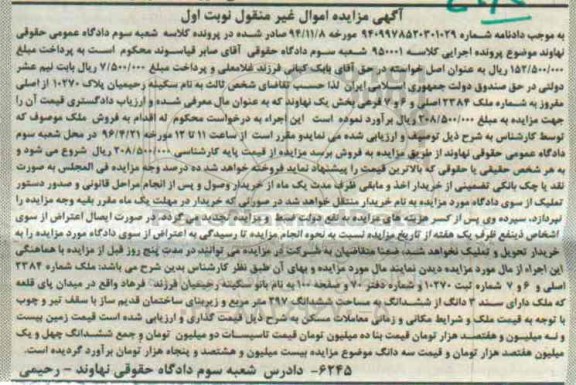 آگهی مزایده اموال غیر منقول نوبت اول
به موجب دادنامه شماره ۹۴۰۹۹۷۸۵۲۰۳۰۱۰۲۹ مورخه ۹۴/۱۱/۸ صادر شده در پرونده کلاسه شعبه سوم دادگاه عمومی حقوقی
نهاوند موضوع پرونده اجرایی کلاسه ۹۵۰۰۰۱ شعبه سوم دادگاه حقوقی آقای صابر قیاسوند محکوم است به پرداخت مبلغ
۱۵۲/۵۰۰/۰۰۰ ریال به عنوان اصل خواسته در حق آقای بابک کیانی فرزند غلامعلی و پرداخت مبلغ ۷/۵۰۰/۰۰۰ ریال بابت نیم عشر
دولتی در حق صندوق دولت جمهوری اسلامی ایران لذا حسب تقاضای شخص ثالث به نام سکینه رحیمیان پلاک ۱۰۲۷۰ از اصلی
مفروز به شماره ملک ۲۳۸۴ اصلی و ۶ و ۷ فرعی بخش یک نهاوند که به عنوان مال معرفی شده و ارزیاب دادگستری قیمت آن را
جهت مزایده به مبلغ ۲۰۸/۵۰۰/۰۰۰ ریال برآورد نموده است این اجراء به درخواست محکوم له اقدام به فروش ملک موصوف که
توسط کارشناس به شرح ذیل توصیف و ارزیابی شده می نماید و مقرر است از ساعت ۱۱ تا ۱۲ مورخه ۹۶/۴/۲۱ در محل شعبه سوم
دادگاه عمومی حقوقی نهاوند از طریق مزایده به فروش برسد مزایده از قیمت پایه کارشناسی ۲۰۸/۵۰۰/۰۰۰ ریال شروع می شود و
به هر شخص حقیقی یا حقوقی که بالاترین قیمت را پیشنهاد نماید فروخته خواهد شد ده درصد وجه مزایده فی المجلس به صورت
نقد یا چک بانکی تضمینی از خریدار اخذ و مابقی ظرف مدت یک ماه از خریدار وصول و پس از انجام مراحل قانونی و صدور دستور
تملیک از سوی دادگاه مورد مزایده به نام خریدار منتقل خواهد شد در صورتی که خریدار در مهلت یک ماه مقرر بقیه وجه مزایده را
نپردازد، سپرده وی پس از کسر هزینه های مزایده به نفع دولت ضبط و مزایده تجدید می گردد. در صورت ایصال اعتراض از سوی
اشخاص ذینفع ظرف یک هفته از تاریخ مزایده نسبت به نحوه انجام مزایده تا رسیدگی به اعتراض از سوی دادگاه مورد مزایده را به
خریدار تحویل و تملیک نخواهد شد. ضمنا متقاضیان به شرکت در مزایده می توانند در مدت پنج روز قبل از مزایده با هماهنگی
این اجراء از مال مورد مزایده دیدن نمایند مال مورد مزایده و بهای آن طبق نظر کارشناس بدین شرح می باشد: ملک شماره ۲۳۸۴
اصلی و ۶ و ۷ شماره ثبت ۱۰۲۷۰ و شماره دفتر ۷۰ و صفحه ۱۰۰ به نام بانو سکینه رحیمیان فرزند: فرهاد واقع در میدان پای قلعه
که ملک دارای سند ۳ دانگ از ششدانگ به مساحت ششدانگ ۲۹۷ متر مربع و زیربنای ساختمان قدیم ساز با سقف تیر و چوب
با توجه به قیمت ملک و شرایط مکانی و زمانی معاملات مسکن به شرح ذیل قیمت گذاری و ارزیابی شده است قیمت زمین بیست
و نه میلیون و هفتصد هزار تومان قیمت بنا ده میلیون تومان قیمت تاسیسات دو میلیون تومان و جمع ششدانگ چهل و یک
میلیون هفتصد هزار تومان و قیمت سه دانگ موضوع مزایده بیست میلیون و هشتصد و پنجاه هزار تومان برآورد گردیده است.
۶۲۴۵- دادرس شعبه سوم دادگاه حقوقی نهاوند - رحیمی